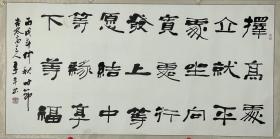 擇高處
企就平
處坐向
寬處行
發上等
愿結中
等緣享
下等福
丙戌年仲秋時節